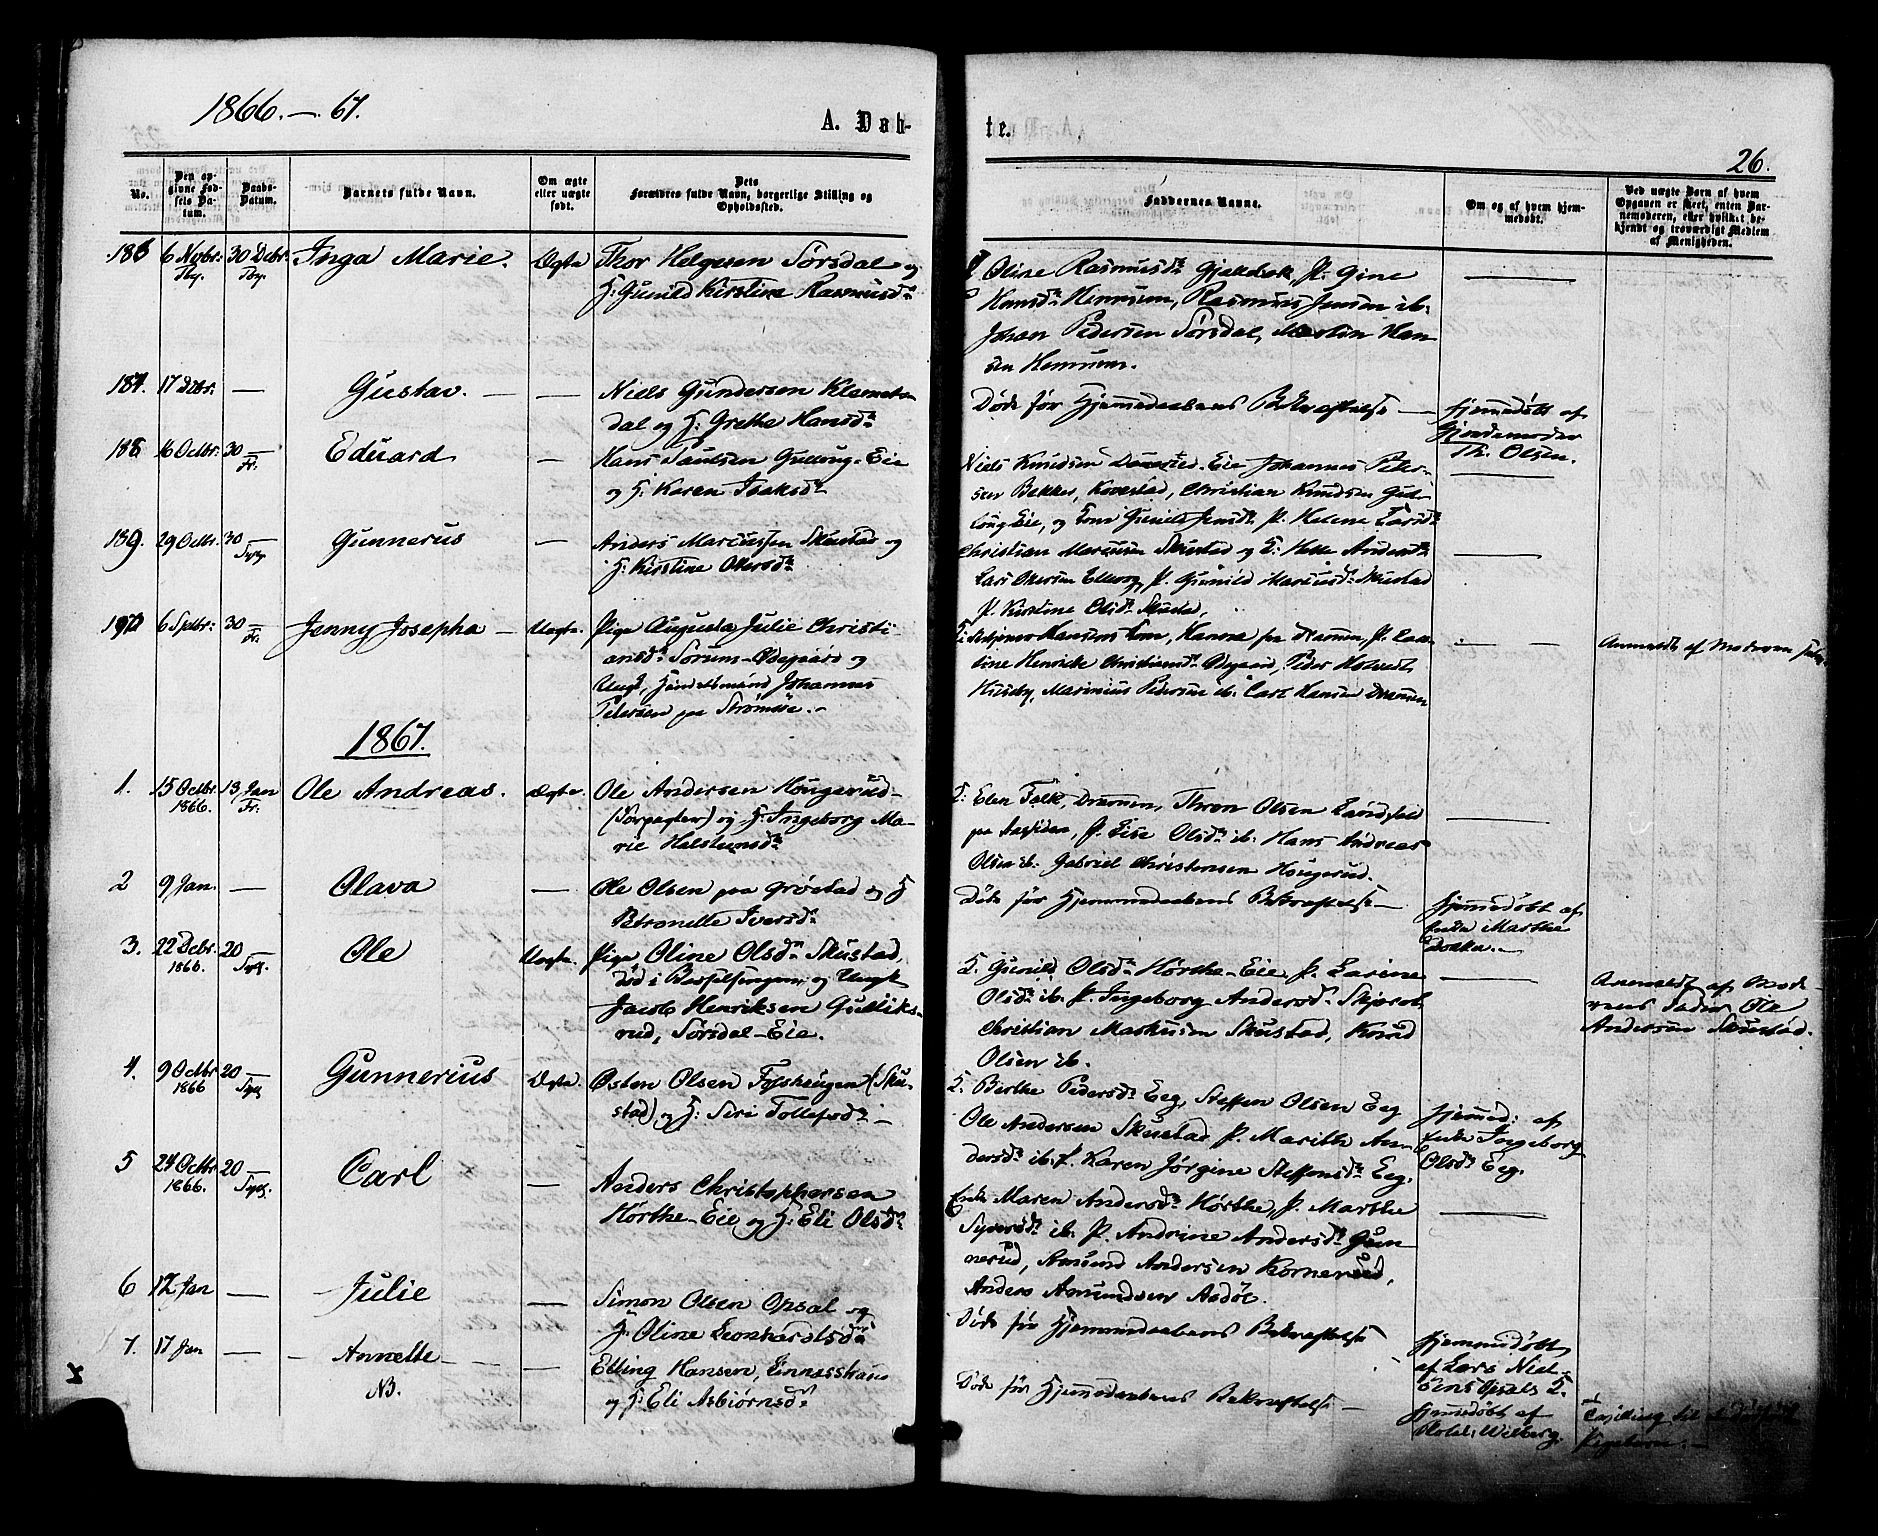 1866.-67.
A. Døb-
te.
26.
No.
Den opgivne Fødsels Datum.
Daabs-Datum.
Barnets fulde Navn.
Om ægte eller uægte født.
Dets Forældres fulde Navn, borgerlige Stilling og Opholdssted.
Faddernes Navne.
Om og af hvem hjemmedøbt.
Ved uægte Børn af hvem Opgaven er skeet, enten Barnemoderen, eller hvilket bekjendt og troværdigt Medlem af Menigheden.
186 6 Novbr: 30 Decbr. Inga Marie. Ægte Thor Helgesen Sørsdal og
H: Gunild Kirstine Rasmusdr
Oline Rasmusdr Gjelebek, P. Gine
Hansdr Hennum, Rasmus Jensen ib.
Johan Pedersen Sørsdal, Martin Han
sen Hennum.
187. 17 Decbr. — Gustav. — — Niels Gundersen Klemets
dal og H: Grethe Hansdr
Døde før Hjemmedaabens Bekræftelse —
Hjemmedøbt af
Gjordemoder
Th. Olsen.
188 16 Octbr. 30 — Fr. Eduard — Hans Paulsen Gullaug-Eie
og H: Karen Isaksdr
Niels Knudsen Dauerstad-Eie Johannes Peder-
sen Bakker, Kovestad, Christian Knudsen Gul-
laug Eie, og Kone Gunild Jensdr P. Helene Larsdr
189. 29 Octbr. 30 — Gunnerius — Anders Marcussen Skustad og
H: Kirstine Olsersdr
Christian Marcusen Skustad og H: Helle Andersdr
P. Gunild Marcusdr Skustad
P. Kirstine Olsdr Skustad,
190 6 Sptbr: 30 — Fr. Jenny Josepha — Uægte. Pige Augusta Julie Christi-
ansdr Sørum-Ødegaard og
Ungk. Handelsmand Johannes
Petersen paa Strømsøe. —
Hansens Kone, Hanna fra Drammen, P. Lau
rine Henrikke Christiansdr Ødegaard, Peder
Huseby, Marinius Pedersen ib. Carl Hansen Drammen
Anmeldt af Moderen selv
1867.
1. 15 Octbr. 1866. 13 Jan Fr. Ole Andreas. Ægte. Ole Andersen Hougerud-
(Forpagter) og H: Ingeborg Ma-
rie Halstensdr
E: Elen Falk, Drammen, Thron Olsen Landfald
paa Aassiden, P. Lise Olsdr ib. Hans Andreas
Olsen ib. Gabriel Christensen Hougerud.
2 9 Jan. — Olava — Ole Olsen paa Grøstad og H
Petronelle Iversdr
Døde før Hjemmedaabens Bekræftelse —
Hjemmedøbt af
Enke Marthe
Bakke. —
3. 22 Decbr. 1866. 20 — Ole Uægte. Pige Oline Olsdr Skustad,
død i Barselsengen, og Ungk
Jacob Henriksen Gulliks-
rud, Sørsdal-Eie.
E. Gunild Olsdr Hørthe-Eie, P. Larine
Olsdr ib. P. Ingeborg Andersdr Skjæret,
Christian Markusen Skustad, Knud
Olsen ib.
Anmeldt af Mod-
erens Fader Ole
Andersen Skustad.
4. 9 Octbr 1866 20 — Gunnerius Ægte Østen Olsen Fosshaugen (Sku-
stad) og H: Siri Tollefsdr —
E. Birthe Pedersdr Eeg, Steffen Olsen Eeg
Ole Andersen Skustad P. Marith An-
dersdr ib. P. Karen Jørgine Steffensdr Eeg.
Hjemmed: af
Enke Ingeborg
Olsdr Eeg.
5 24 Octbr 1866. 20 — Carl — Anders Christophersen
Hørthe-Eie og H: Eli Olsdr
Enke Maren Andersdr Hørthe, P. Marthe
Syversdr ib. P. Andrine Andersdr Gun-
nerud, Amund Andersen Kornerud,
Anders Amundsen Asdøl.
6 12 Jan — Julie — Simon Olsen Opsal og
H: Oline Leonhardsdr
Døde før Hjemmedaabens Bekræftelse
Hjemmedøbt
af Lars Niel-
sens Opsals E.
7. 17 Jan — Annette — — Elling Hansen, Linneshaug
NB. og H: Eli Asbjørnsdr
Døde før Hjemmedaabens Bekræftelse —
Hjemmedøbt af
Wilberg.